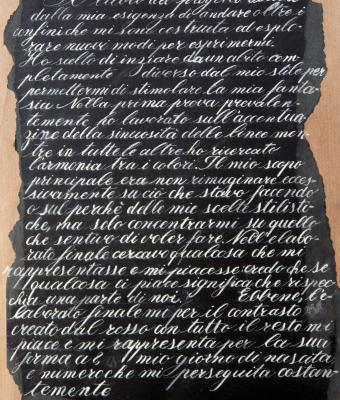 Il lavoro del progetto
dalla mia esigenza di andare oltre i
confini che mi sono costruita ed esplo-
rare nuovi modi per esprimermi.
Ho scelto di iniziare da un abito com-
pletamente diverso dal mio stile per
permettermi di stimolare la mia fanta-
sia. Nella prima prova prevalen-
temente ho lavorato sull'accentua-
zione della sinuosità delle linee men-
tre in tutte le altre ho ricercato
l'armonia tra i colori. Il mio scopo
principale era non rimuginare ecces-
sivamente su ciò che stavo facendo
o sul perchè delle mie scelte stilisti-
che, ma solo concentrarmi su quello
che sentivo di voler fare. Nell'elabo-
rato finale cercavo qualcosa che mi
rappresentasse e mi piacesse credo che se
qualcosa ti piace significa che rispec-
chia una parte di noi. Ebbene, l'e-
laborato finale mi per il contrasto
creato dal rosso con tutto il resto mi
piace e mi rappresenta per la sua
forma a 8, mio giorno di nascita
e numero che mi perseguita costan-
temente